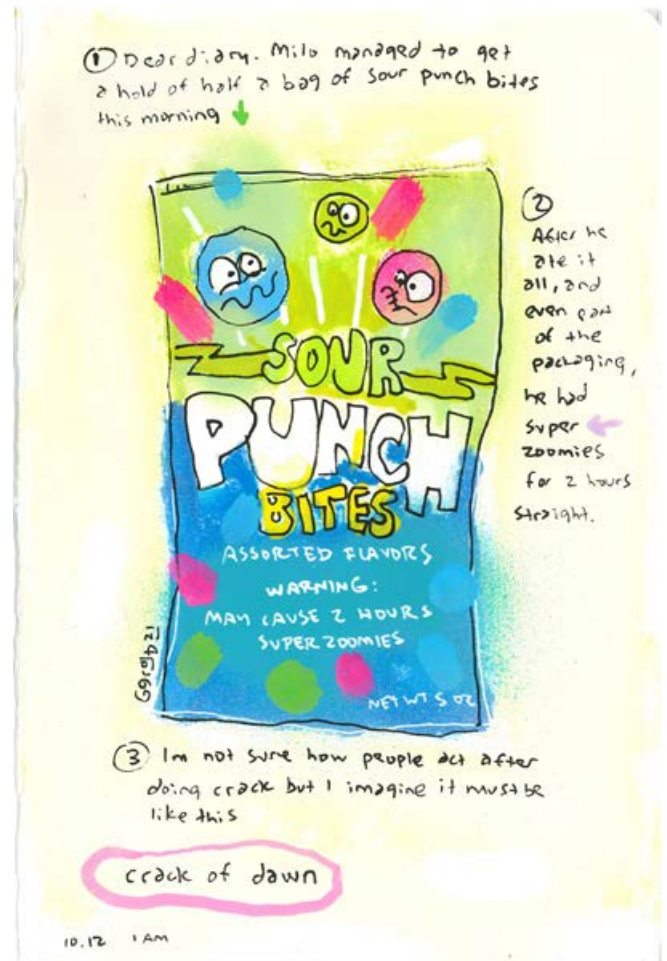 ① Dear diary. Milo managed to get
a hold of half a bag of sour punch bites
this morning
②
After he
ate it
all, and
even part
of the
packaging,
he had
super
zoomies
for 2 hours
straight.
SOUR
PUNCH
BITES
ASSORTED FLAVORS
WARNING:
MAY CAUSE 2 HOURS
SUPER ZOOMIES
NET WT 5 OZ
③ Im not sure how people act after
doing crack but I imagine it must be
like this
crack of dawn
10.12 1 AM